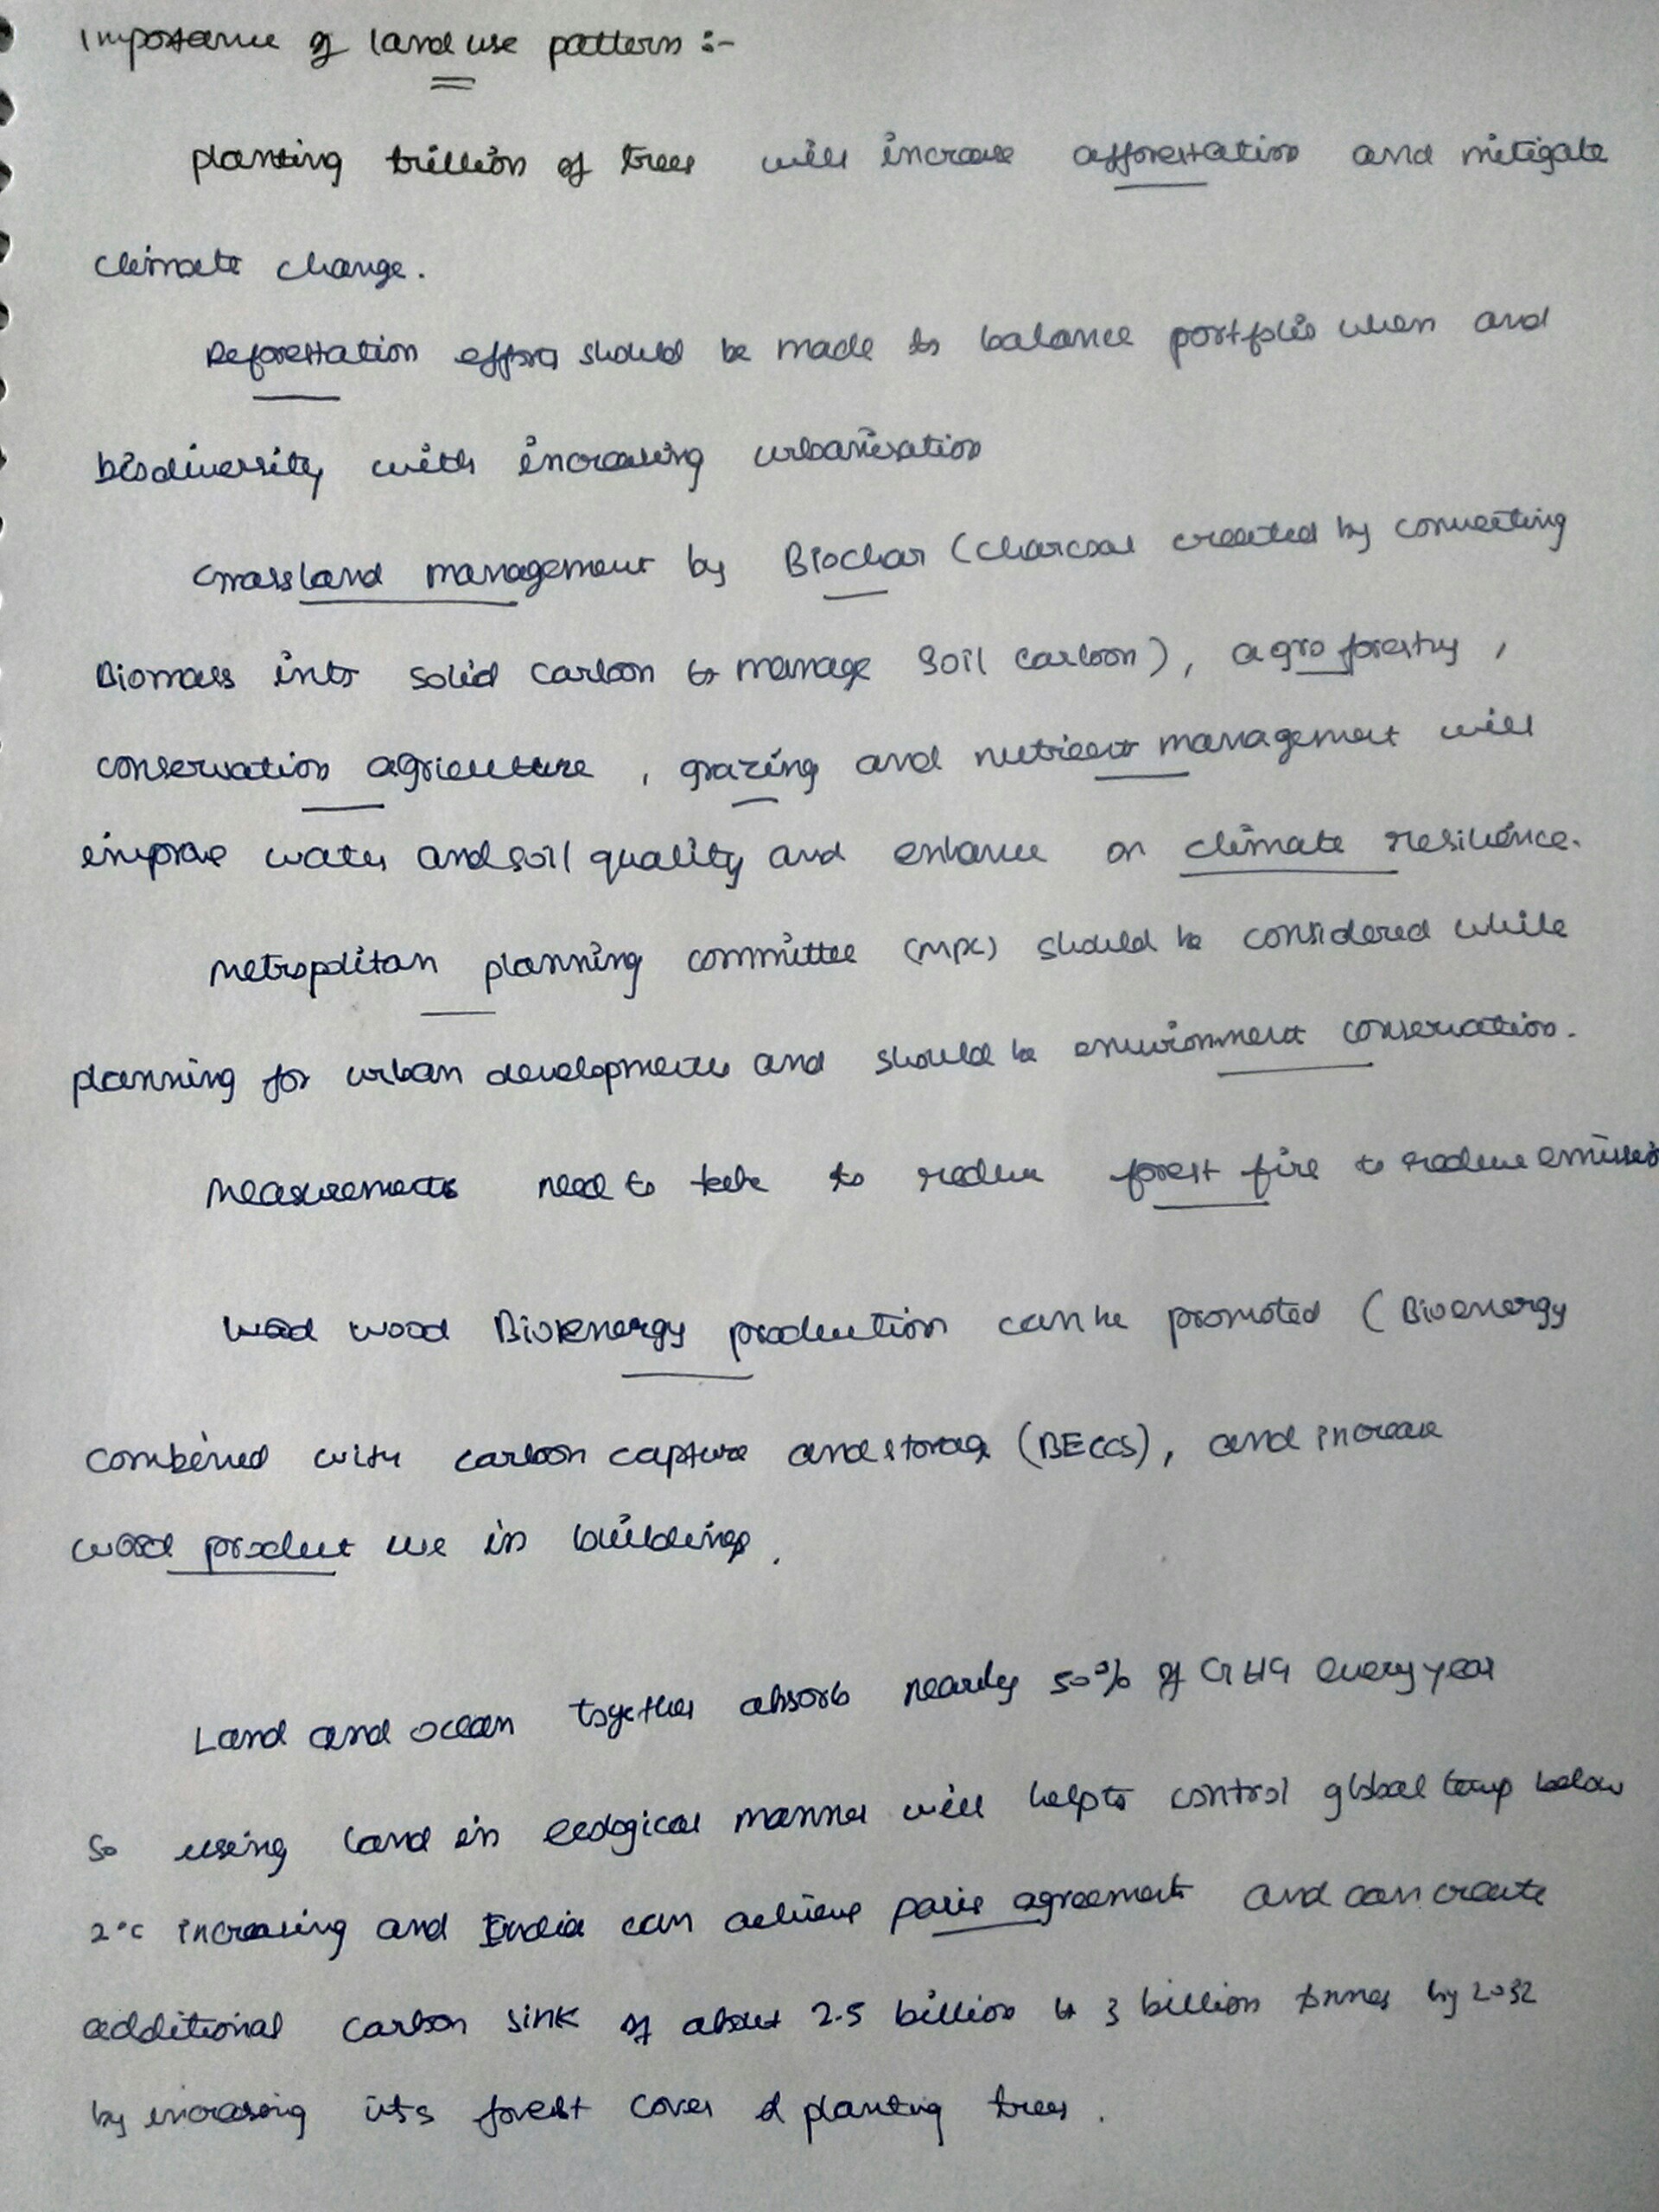 Importance of land use pattern :-
planting trillion of trees will increase afforestation and mitigate
climate change.
Reforestation efforts should be made to balance portfolio when and
biodiversity with increasing urbanisation
Grassland management by Biochar (charcoal created by converting
Biomass into solid carbon to manage soil carbon), agro forestry,
conservation agriculture, grazing and nutrient management will
improve water and soil quality and enhance on climate resilience.
Metropolitan planning committee (MPC) should be considered while
planning for urban developments and should be environment conservation.
Measurements need to take to reduce forest fire to reduce emission
wood Bioenergy production can be promoted (Bioenergy
combined with carbon capture and storage (BECCS), and increase
wood product use in buildings.
Land and ocean together absorb nearly 50% of GHG every year
So using land in ecological manner will help to control global temp below
2°c increasing and India can achieve paris agreement and can create
additional carbon sink of about 2.5 billion to 3 billion tonnes by 2032
by increasing its forest cover & planting trees.